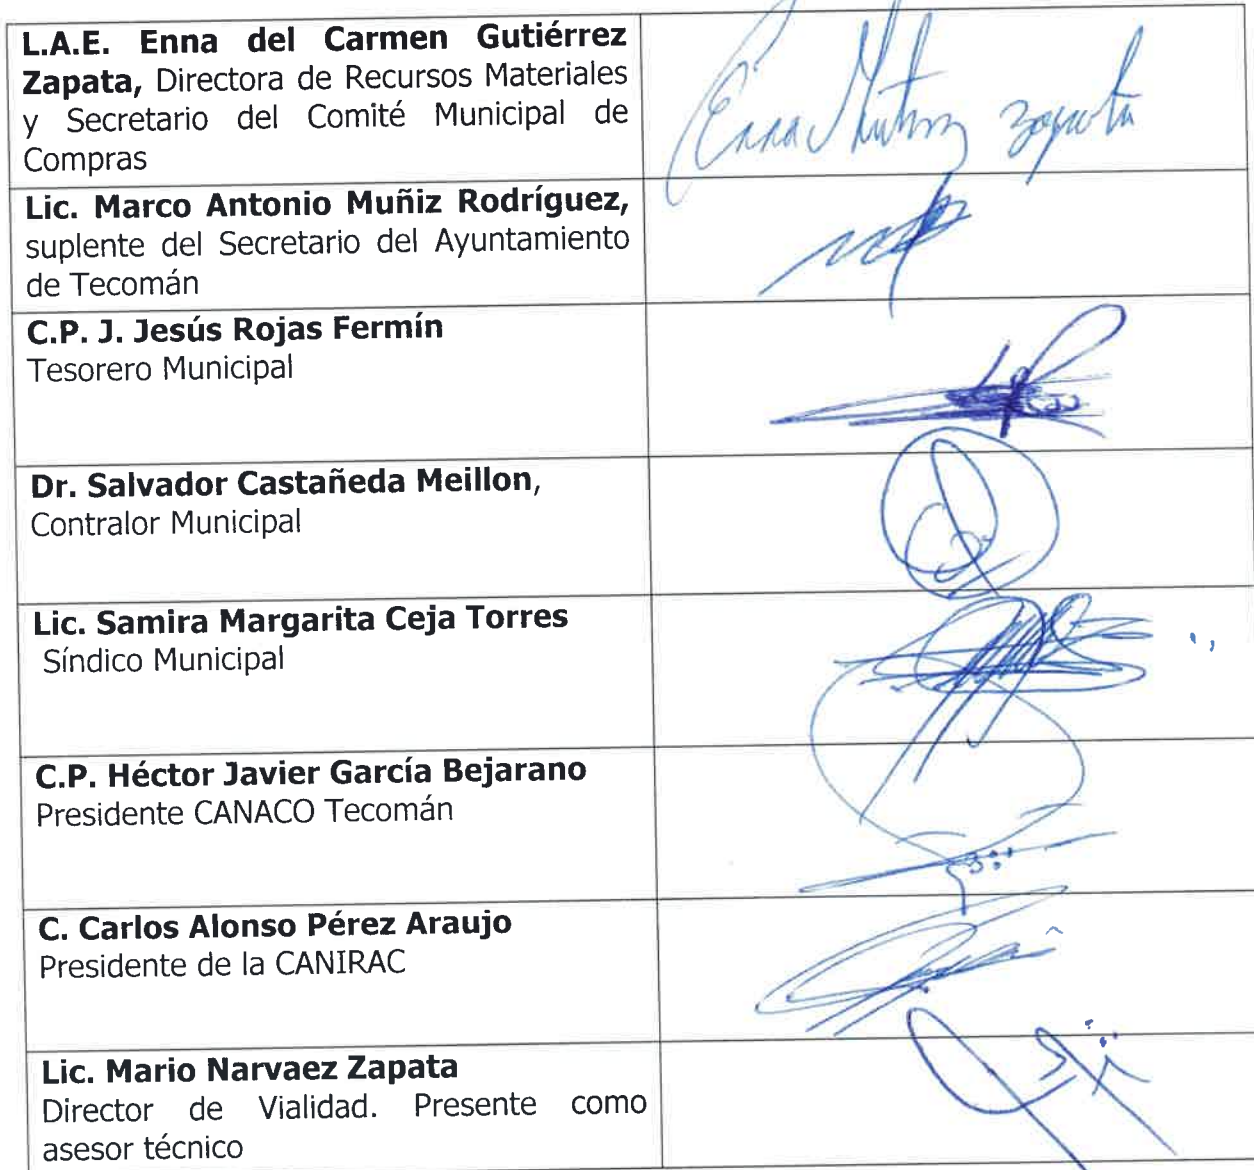 L.A.E. Enna del Carmen Gutiérrez
Zapata, Directora de Recursos Materiales
y Secretario del Comité Municipal de
Compras
Enna Zapata
Lic. Marco Antonio Muñiz Rodríguez,
suplente del Secretario del Ayuntamiento
de Tecomán
C.P. J. Jesús Rojas Fermín
Tesorero Municipal
Dr. Salvador Castañeda Meillon,
Contralor Municipal
Lic. Samira Margarita Ceja Torres
Síndico Municipal
C.P. Héctor Javier García Bejarano
Presidente CANACO Tecomán
C. Carlos Alonso Pérez Araujo
Presidente de la CANIRAC
Lic. Mario Narvaez Zapata
Director de Vialidad. Presente como
asesor técnico